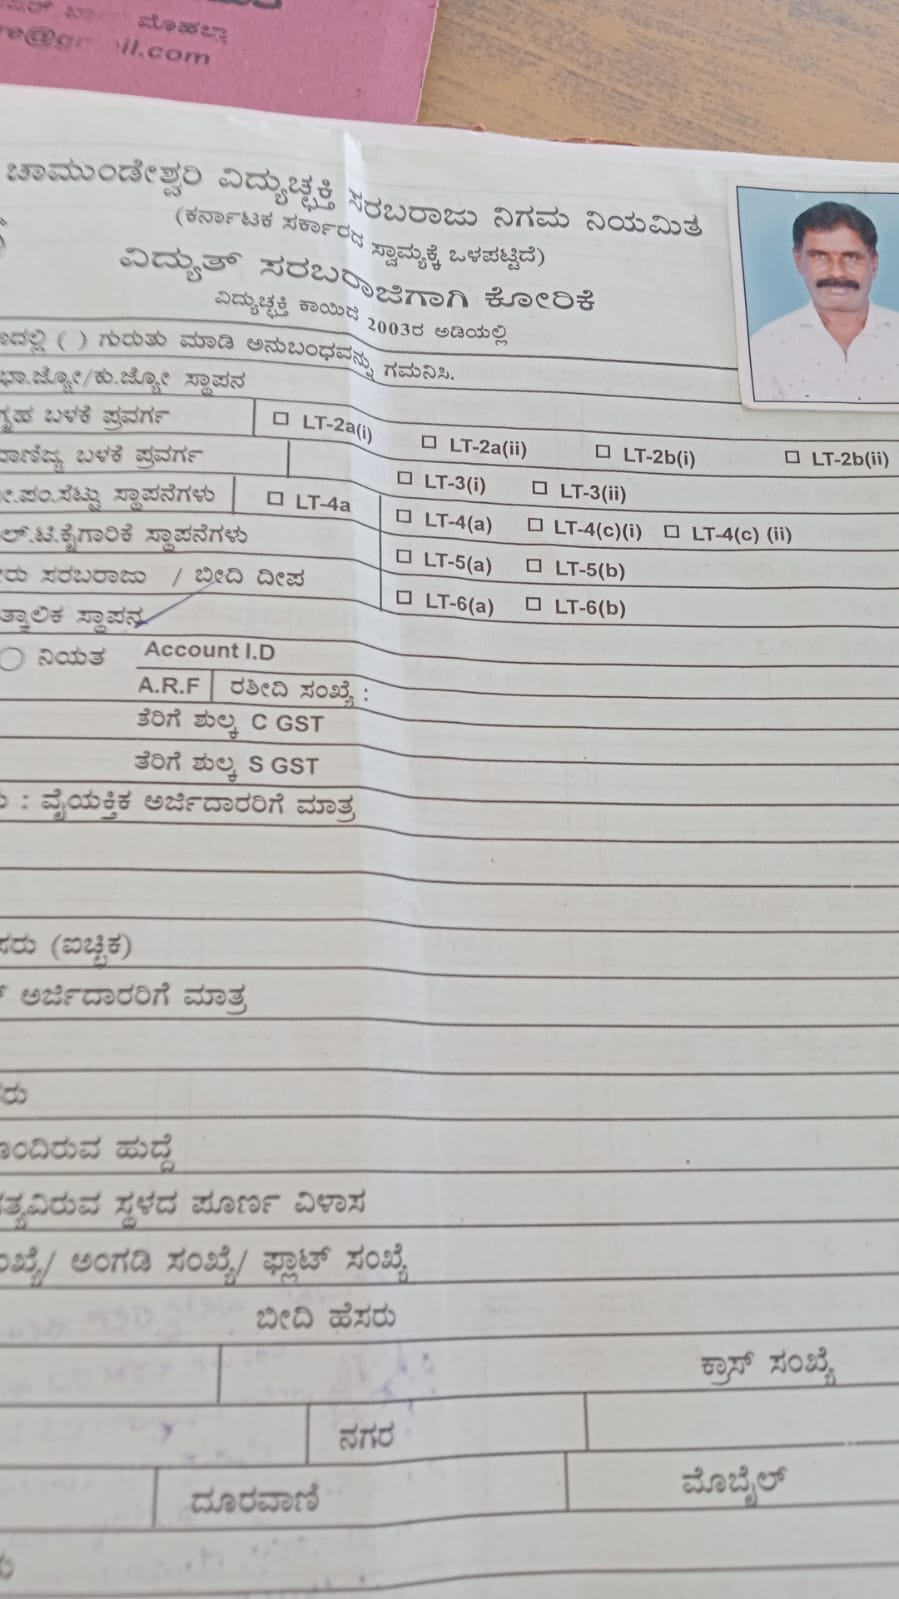 ಮೊಹಲ್ಲಾ
il.com
ಚಾಮುಂಡೇಶ್ವರಿ ವಿದ್ಯುಚ್ಛಕ್ತಿ ಸರಬರಾಜು ನಿಗಮ ನಿಯಮಿತ
(ಕರ್ನಾಟಕ ಸರ್ಕಾರದ ಸ್ವಾಮ್ಯಕ್ಕೆ ಒಳಪಟ್ಟಿದೆ)
ವಿದ್ಯುತ್ ಸರಬರಾಜಿಗಾಗಿ ಕೋರಿಕೆ
ವಿದ್ಯುಚ್ಛಕ್ತಿ ಕಾಯಿದೆ 2003ರ ಅಡಿಯಲ್ಲಿ
( ) ಗುರುತು ಮಾಡಿ ಅನುಬಂಧವನ್ನು ಗಮನಿಸಿ.
ಭಾ.ಜ್ಯೋ/ಕು.ಜ್ಯೋ ಸ್ಥಾಪನ
ಗೃಹ ಬಳಕೆ ಪ್ರವರ್ಗ ☐ LT-2a(i) ☐ LT-2a(ii) ☐ LT-2b(i) ☐ LT-2b(ii)
ಬಳಕೆ ಪ್ರವರ್ಗ ☐ LT-3(i) ☐ LT-3(ii)
ಪಂ.ಸೆಟ್ಟು ಸ್ಥಾಪನೆಗಳು ☐ LT-4a ☐ LT-4(a) ☐ LT-4(c)(i) ☐ LT-4(c) (ii)
ಲ್.ಟಿ.ಕೈಗಾರಿಕೆ ಸ್ಥಾಪನೆಗಳು ☐ LT-5(a) ☐ LT-5(b)
ಸರಬರಾಜು / ಬೀದಿ ದೀಪ ☐ LT-6(a) ☐ LT-6(b)
ತ್ಕಾಲಿಕ ಸ್ಥಾಪನ
ನಿಯತ Account I.D
A.R.F ರಶೀದಿ ಸಂಖ್ಯೆ :
ತೆರಿಗೆ ಶುಲ್ಕ C GST
ತೆರಿಗೆ ಶುಲ್ಕ S GST
: ವೈಯಕ್ತಿಕ ಅರ್ಜಿದಾರರಿಗೆ ಮಾತ್ರ
ಸರು (ಐಚ್ಛಿಕ)
ಅರ್ಜಿದಾರರಿಗೆ ಮಾತ್ರ
ರು
ೊಂದಿರುವ ಹುದ್ದೆ
ತ್ಯವಿರುವ ಸ್ಥಳದ ಪೂರ್ಣ ವಿಳಾಸ
ಖ್ಯೆ/ ಅಂಗಡಿ ಸಂಖ್ಯೆ/ ಫ್ಲಾಟ್ ಸಂಖ್ಯೆ
ಬೀದಿ ಹೆಸರು
ಕ್ರಾಸ್ ಸಂಖ್ಯೆ
ನಗರ
ದೂರವಾಣಿ ಮೊಬೈಲ್